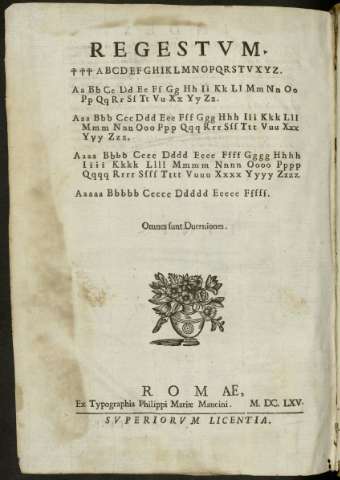 REGESTVM.
††† ABCDEFGHIKLMNOPQRSTVXYZ.
Aa Bb Cc Dd Ee Ff Gg Hh Ii Kk Ll Mm Nn Oo
Pp Qq Rr Sſ Tt Vu Xx Yy Zz.
Aaa Bbb Ccc Ddd Eee Fff Ggg Hhh Iii Kkk Lll
Mmm Nnn Ooo Ppp Qqq Rrr Sſſ Ttt Vuu Xxx
Yyy Zzz.
Aaaa Bbbb Cccc Dddd Eeee Ffff Gggg Hhhh
Iiii Kkkk Llll Mmmm Nnnn Oooo Pppp
Qqqq Rrrr Sſſſ Tttt Vuuu Xxxx Yyyy Zzzz.
Aaaaa Bbbbb Ccccc Ddddd Eeeee Fffff.
Omnes ſunt Duerniones.
ROMÆ,
Ex Typographia Philippi Mariæ Mancini. M. DC. LXV.
SVPERIORVM LICENTIA.